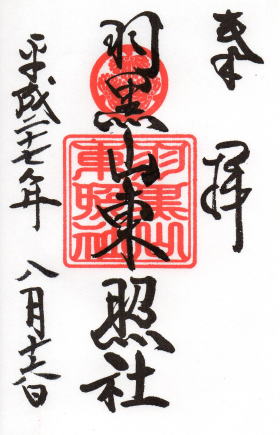 奉拝
羽黒山東照社
平成二十七年 八月
羽黒山
東照社